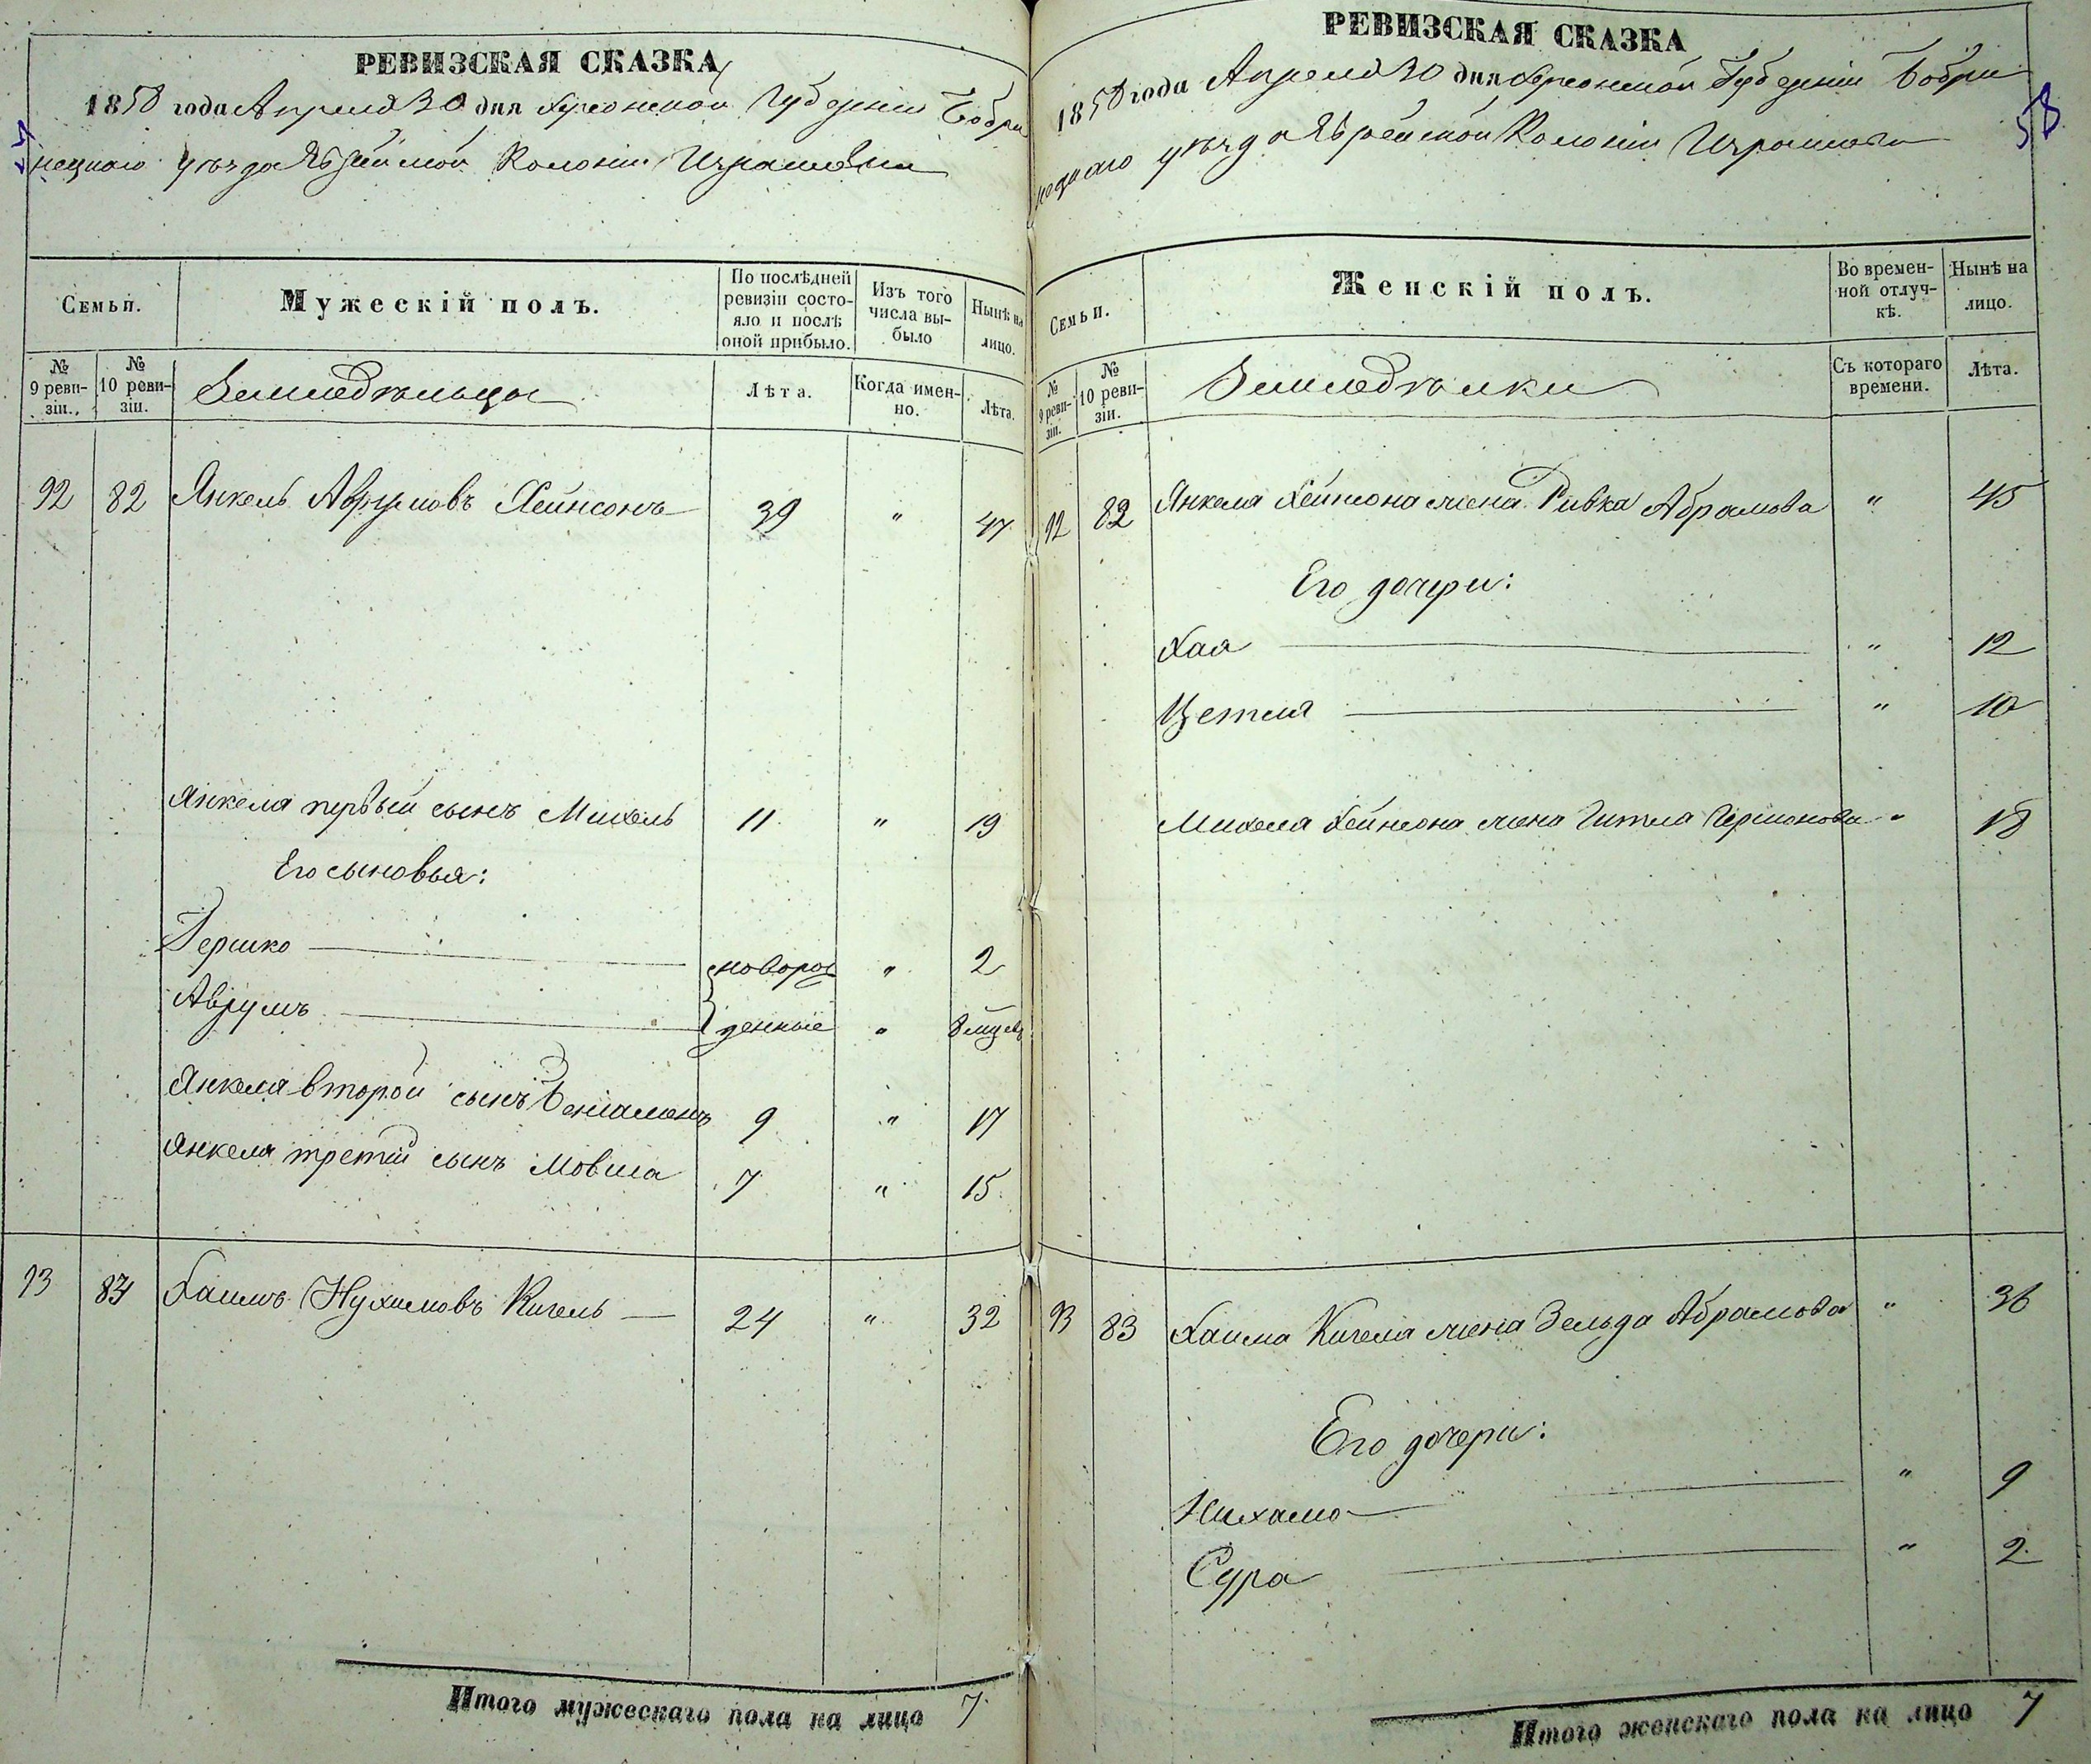 РЕВИЗСКАЯ СКАЗКА
1858 года Апреля 30 дня Херсонской Губерніи Бобри
нецкаго уѣзда Еврейской Колоніи Израилевки
Семьи.
Мужескій полъ.
По послѣдней ревизіи состояло и послѣ оной прибыло.
Изъ того числа выбыло
Нынѣ на лицо.
№ 9 ревизіи.
№ 10 ревизіи.
Земледѣльцы
Лѣта.
Когда именно.
Лѣта.
92 82 Янкель Аврумовъ Хейнсонъ 39 " 47
Янкеля первый сынъ Михель 11 " 19
Его сыновья:
Гершко новорож " 2
Аврумъ денные " 8 мцев
Янкеля второй сынъ Веніаминъ 9 " 17
Янкеля третій сынъ Мовша 7 " 15
93 83 Хаимъ Нухимовъ Кигель 24 " 32
Итого мужескаго пола на лицо 7
РЕВИЗСКАЯ СКАЗКА
58
1858 года Апреля 30 дня Херсонской Губерніи Бобри
нецкаго уѣзда Еврейской Колоніи Израилевки
Семьи.
Женскій полъ.
Во временной отлучкѣ.
Нынѣ на лицо.
№ 9 ревизіи.
№ 10 ревизіи.
Земледѣлки
Съ котораго времени.
Лѣта.
92 82 Янкеля Хейнсона жена Ривка Абрамова " 45
Его дочери:
Хая " 12
Цетля " 10
Михеля Хейнсона жена Гитля Гершонова " 18
93 83 Хаима Кигеля жена Зельда Абрамова " 36
Его дочери:
Нихама " 9
Сура " 2
Итого женскаго пола на лицо 7